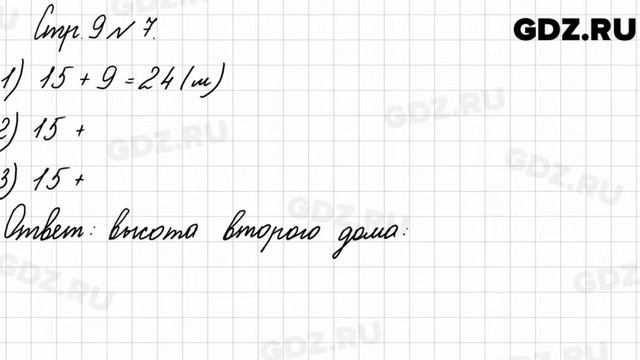 Стр. 9 № 7.
GDZ.RU
1) 15 + 9 = 24 (м)
2) 15 +
3) 15 +
Ответ: высота второго дома:
GDZ.RU
GDZ.RU
GDZ.RU
GDZ.RU
GDZ.RU
GDZ.RU
GDZ.RU